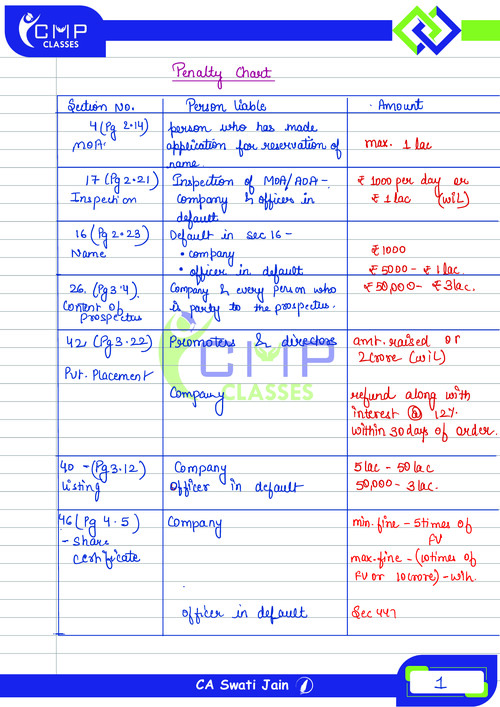 CMP
CLASSES
Penalty Chart
Section No. Person liable Amount
4 (Pg 2.14) person who has made
MOA. application for reservation of max. 1 lac
name.
17 (Pg 2.21) Inspection of MOA/AOA - ₹1000 per day or
Inspection Company & officer in ₹1 lac (WIL)
default
16 (Pg 2.23) Default in sec 16 -
Name • company ₹1000
• officer in default ₹5000 - ₹1 lac.
26. (Pg 3.4) Company & every person who ₹50,000 - ₹3lac.
Content of is party to the prospectus.
prospectus
42 (Pg 3.22) Promoters & directors amt. raised or
2 crore (WIL)
Pvt. Placement
Company refund along with
interest @ 12%
within 30 days of order.
CMP
CLASSES
40 - (Pg 3.12) Company 5 lac - 50 lac
listing Officer in default 50,000 - 3 lac.
46 (Pg 4.5) Company min. fine - 5 times of
- Share FV
certificate max. fine - (10 times of
FV or 10 crore) - WIH.
officer in default Sec 447
CA Swati Jain
1